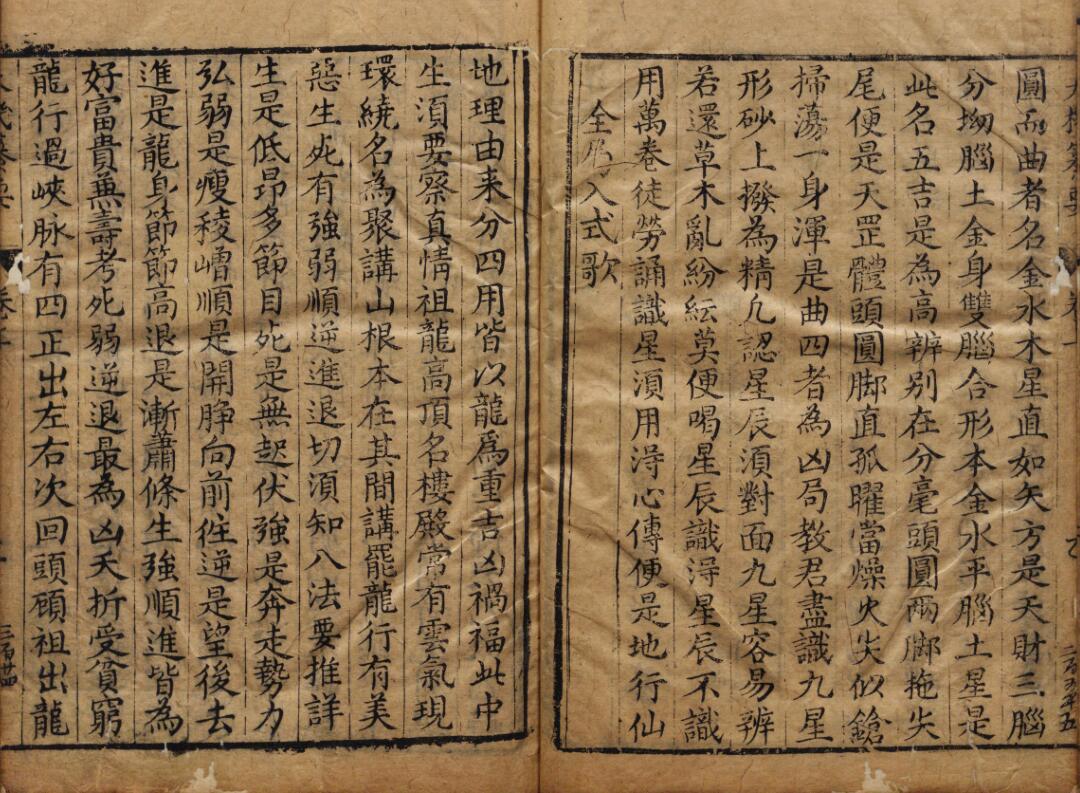 圓而曲者名金水木星直如矢方是天財三腦
分坳腦土金身雙腦合形本金水平腦土星是
此名五吉是為高辨别在分毫頭圓兩脚拖尖
尾便是天罡體頭圓脚直孤曜當燥火尖似鎗
掃蕩一身渾是曲四者為凶局教君盡識九星
形砂上撥為精凢認星辰湏對面九星容易辨
若還草木亂紛紜莫便喝星辰識淂星辰不識
用萬卷徒勞誦識星湏用淂心傳便是地行仙
入式歌
地理由来分四用皆以龍爲重吉凶禍福此中
生湏要察真情祖龍高頂名樓殿常有雲氣現
環繞名為聚講山根本在其間講罷龍行有美
惡生死有強弱順逆進退切湏知八法要推詳
生是低昻多節目死是無起伏強是奔走勢力
弘弱是瘦稜嶒順是開睁向前徃逆是望後去
進是龍身節節高退是漸蕭條生強順進皆為
好富貴兼壽考死弱逆退最為凶夭折受貧窮
龍行過峽脉有四正出左右次回頭顧祖出龍